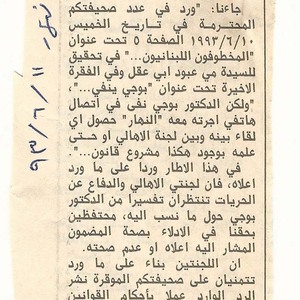 جاءنا: "ورد في عدد صحيفتكم
المحترمة في تاريخ الخميس
١٩٩٣/٦/١٠ الصفحة ٥ تحت عنوان
"المخطوفون اللبنانيون"... في تحقيق
للسيدة مي عبود ابي عقل وفي الفقرة
الاخيرة تحت عنوان "بوجي ينفي..."،
"ولكن الدكتور بوجي نفى في اتصال
هاتفي اجرته معه "النهار" حصول اي
لقاء بينه وبين لجنة الاهالي او حتى
علمه بوجود هكذا مشروع قانون...".
في هذا الاطار وردا على ما ورد
اعلاه، فان لجنتي الاهالي والدفاع عن
الحريات تنتظران تفسيرا من الدكتور
بوجي حول ما نسب اليه، محتفظين
بحقنا في الادلاء بصحة المضمون
المشار اليه اعلاه او عدم صحته.
ان اللجنتين بناء على ما ورد
تتمنيان على صحيفتكم الموقرة نشر
الرد الوارد عملا بأحكام القوانين
نهار ٩٣/٦/١١